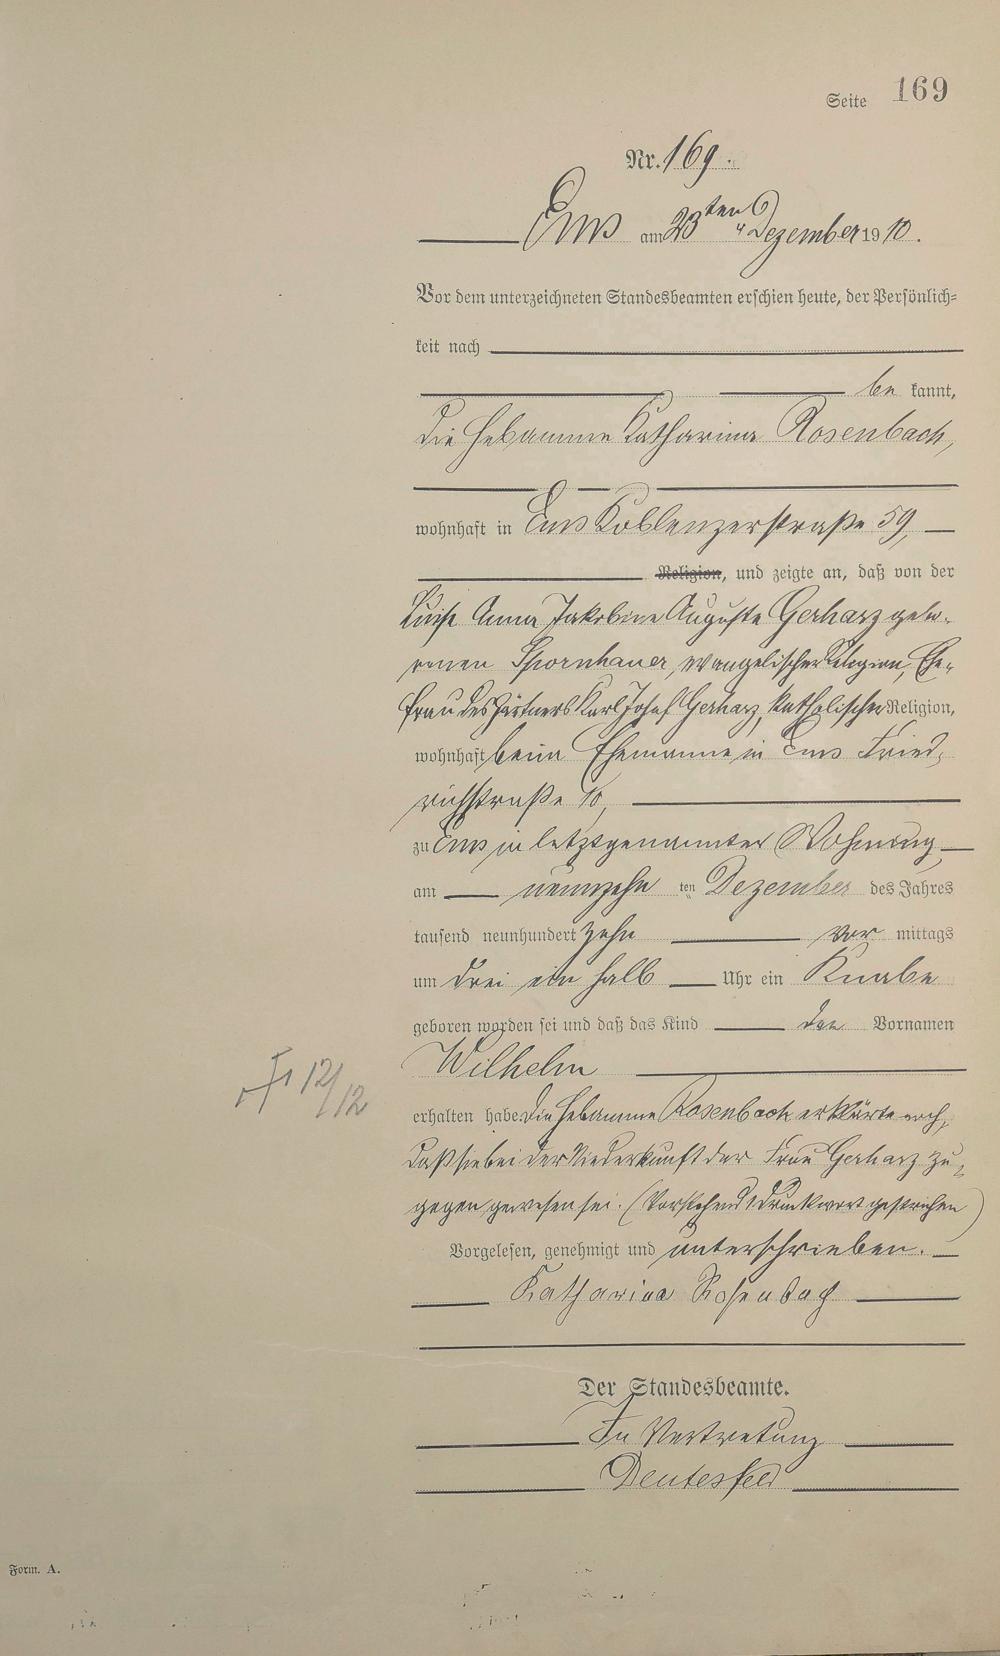 Seite 169
Nr. 169.
Ems am 23ten Dezember 1910.
Vor dem unterzeichneten Standesbeamten erschien heute, der Persönlich=
keit nach
be kannt,
die Hebamme Katharina Rosenbach,
wohnhaft in Ems Koblenzerstraße 59,
Religion, und zeigte an, daß von der
Luise Anna Jakobine Auguste Gerharz gebo-
renen Spornhauer, evangelischer Religion, Ehe-
frau des Gärtners Karl Josef Gerharz, katholischer Religion,
wohnhaft beim Ehemanne in Ems Fried-
richstraße 10,
zu Ems in letztgenannter Wohnung
am neunzehn ten Dezember des Jahres
tausend neunhundert zehn vor mittags
um drei ein halb Uhr ein Knabe
geboren worden sei und daß das Kind den Vornamen
Wilhelm
12/12
erhalten habe. Die Hebamme Rosenbach erklärte noch,
daß sie bei der Niederkunft der Frau Gerharz zu-
gegen gewesen sei. (Vorstehend 1 Druckwort gestrichen)
Vorgelesen, genehmigt und unterschrieben.
Katharina Rosenbach
Der Standesbeamte.
In Vertretung
Deutesfeld
Form. A.